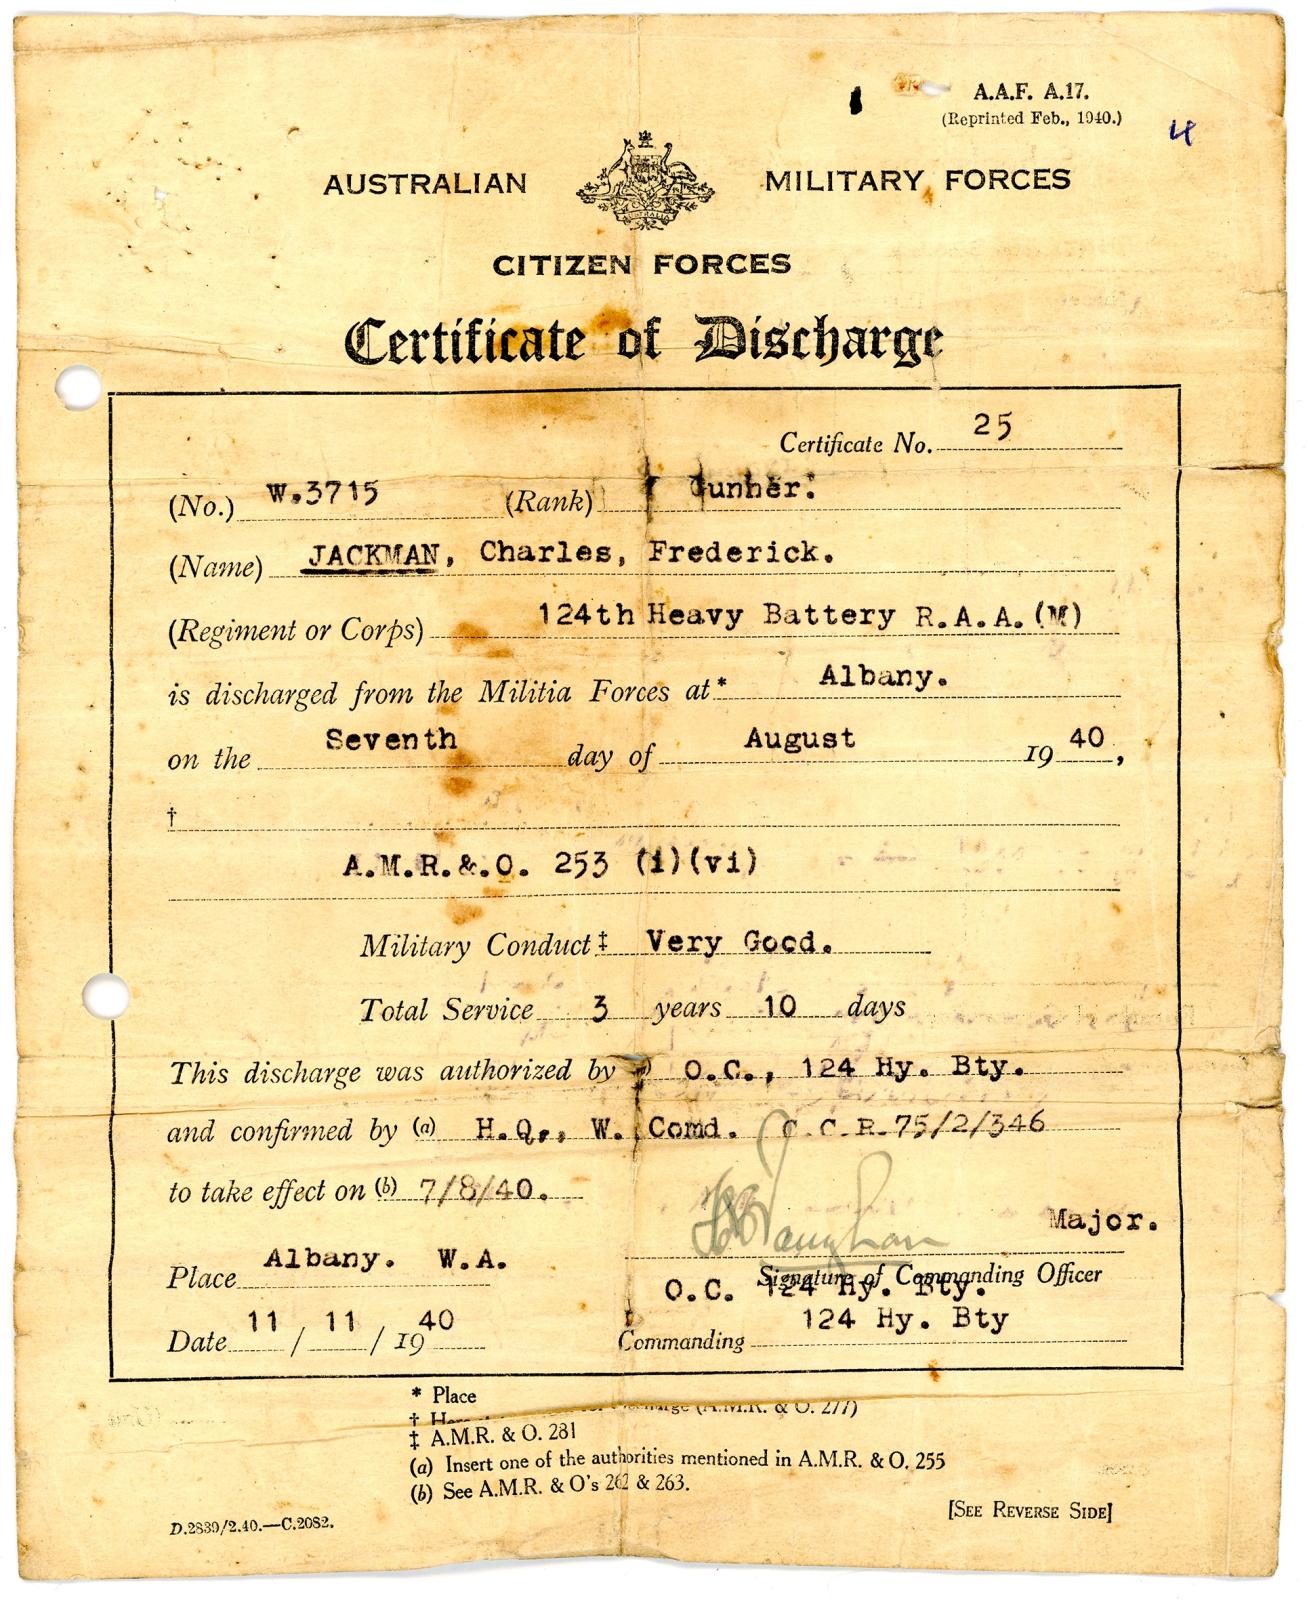 A.A.F. A.17.
(Reprinted Feb., 1940.)
4
AUSTRALIAN MILITARY FORCES
CITIZEN FORCES
Certificate of Discharge
Certificate No. 25
(No.) W.3715 (Rank) Gunner.
(Name) JACKMAN, Charles, Frederick.
(Regiment or Corps) 124th Heavy Battery R.A.A.(M)
is discharged from the Militia Forces at* Albany.
on the Seventh day of August 1940,
†
A.M.R.&.O. 253 (i)(vi)
Military Conduct‡ Very Good.
Total Service 3 years 10 days
This discharge was authorized by O.C., 124 Hy. Bty.
and confirmed by (a) H.Q., W. Comd. C.C.R.75/2/346
to take effect on (b) 7/8/40.
Major.
Place Albany. W.A.
Signature of Commanding Officer
O.C. 124 Hy. Bty.
Date 11 / 11 / 1940
Commanding 124 Hy. Bty
* Place
† discharge (A.M.R. & O. 277)
‡ A.M.R. & O. 281
(a) Insert one of the authorities mentioned in A.M.R. & O. 255
(b) See A.M.R. & O's 262 & 263.
[SEE REVERSE SIDE]
D.2839/2.40.—C.2082.